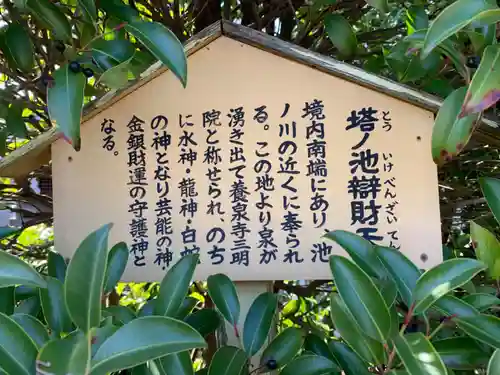 とう いけべんざいてん
塔ノ池辯財天
境内南端にあり、池
ノ川の近くに奉られ
る。この地より泉が
湧き出て養泉寺三明
院と称せられ、のち
に水神・龍神・
の神となり芸能の神
金銀財運の守護神と
なる。